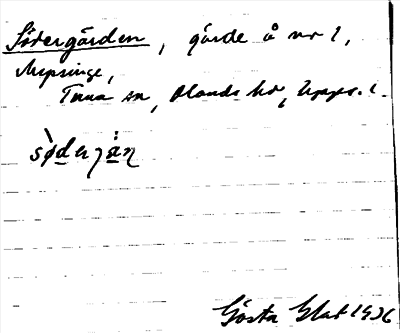 Södergården, gårde å nr 1,
Mepsinge,
Tuna sn, Olands hd, Upps. l.
sø̀dergȧ̀ɳ
Gösta Elat 1936